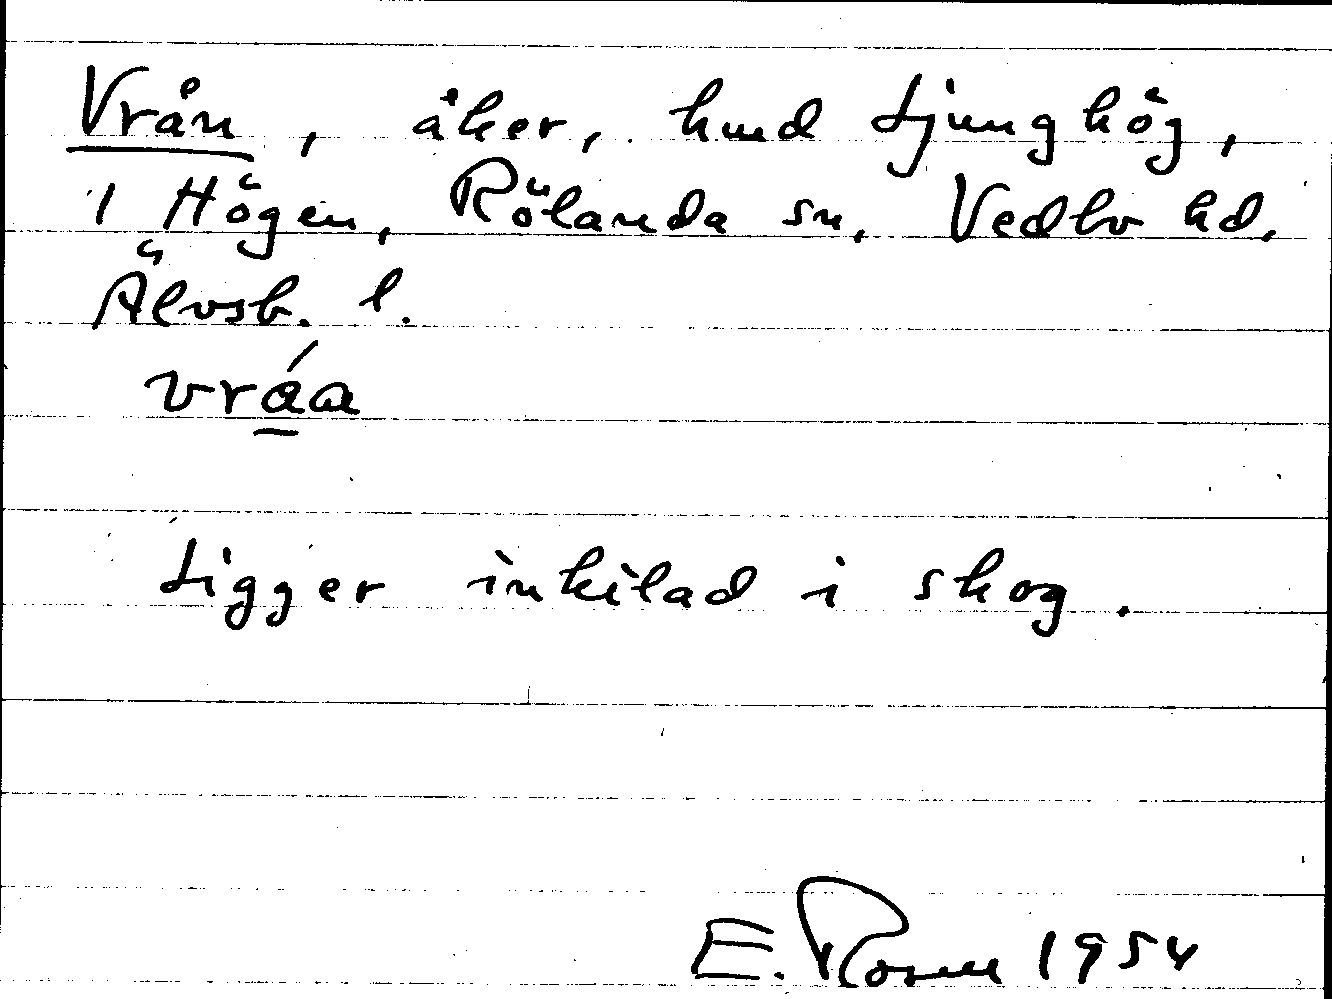 Vrån, åker, hmd Ljunghög,
1 Högen, Rölanda sn, Vedbo hd.
Älvsb. l.
vráa
Ligger inkilad i skog.
E. Rosen 1954